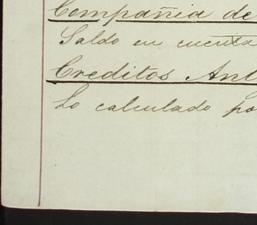 Compañia de
Saldo en cuenta
Creditos Ant
Lo calculado po